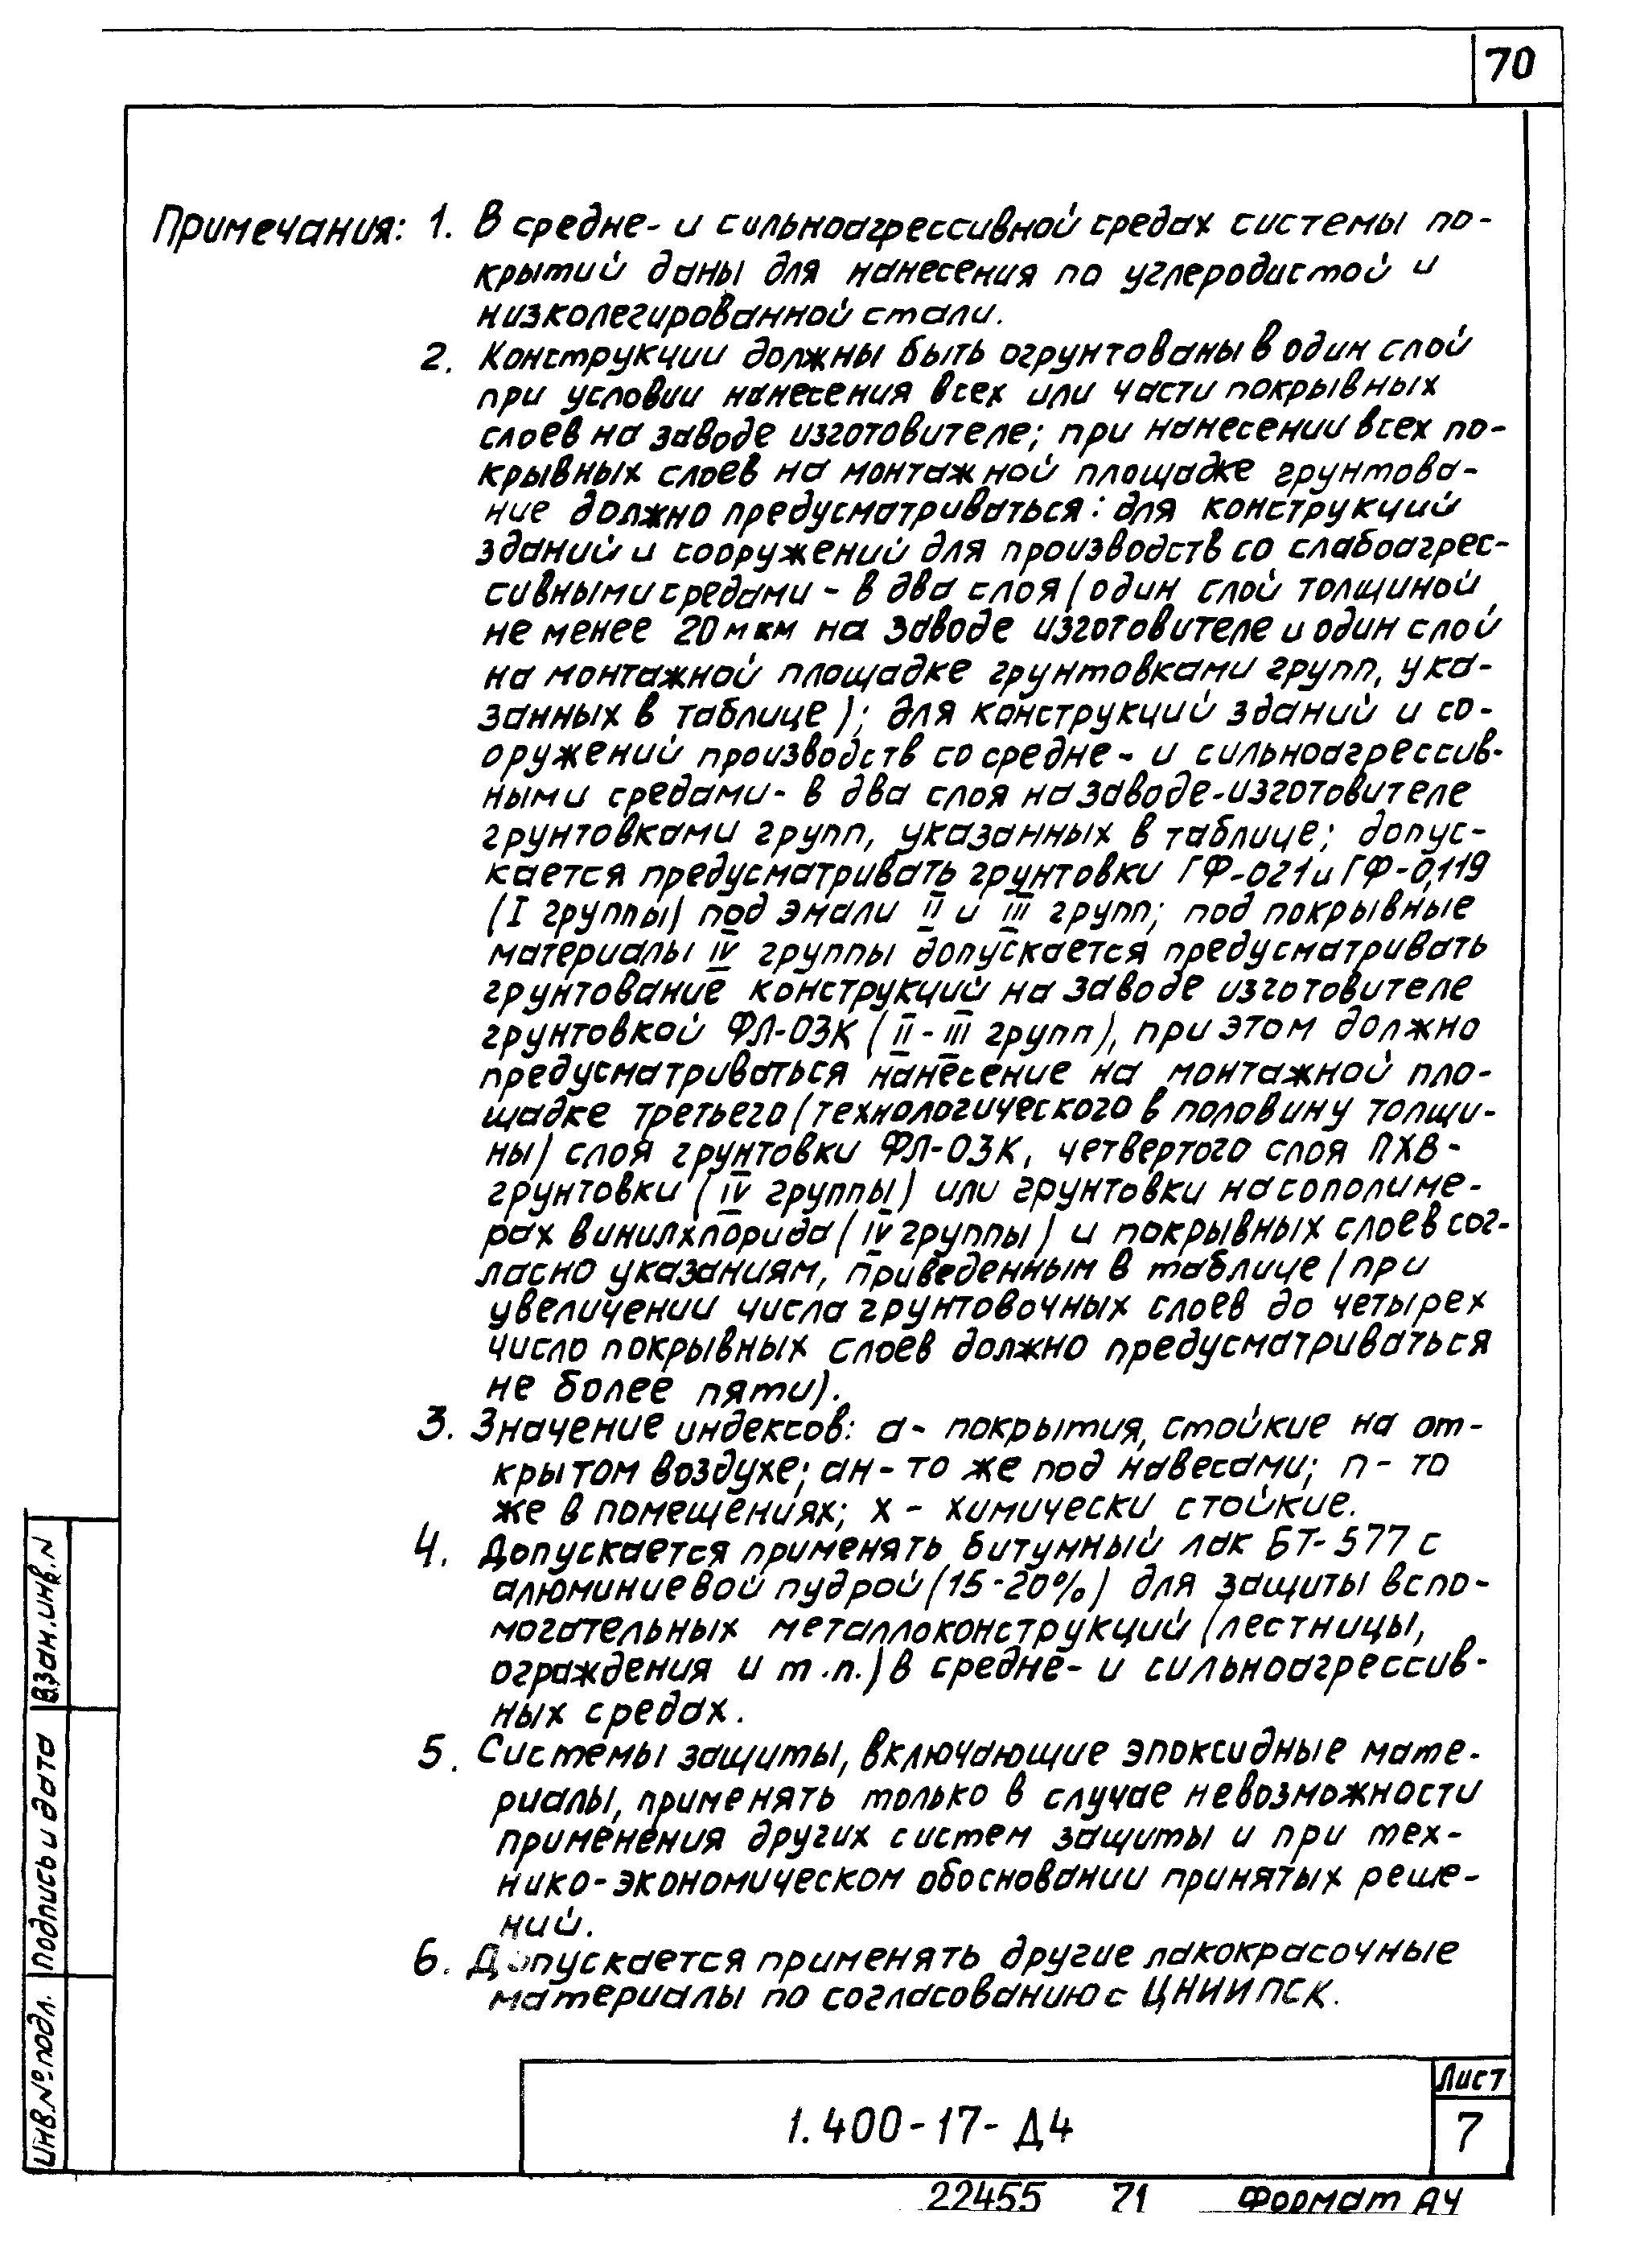 70
Примечания: 1. В средне- и сильноагрессивной средах системы по-
крытий даны для нанесения по углеродистой и
низколегированной стали.
2. Конструкции должны быть огрунтованы в один слой
при условии нанесения всех или части покрывных
слоев на заводе изготовителе; при нанесении всех по-
крывных слоев на монтажной площадке грунтова-
ние должно предусматриваться: для конструкций
зданий и сооружений для производств со слабоагрес-
сивными средами - в два слоя (один слой толщиной
не менее 20 мкм на заводе изготовителе и один слой
на монтажной площадке грунтовками групп, ука-
занных в таблице); для конструкций зданий и со-
оружений производств со средне- и сильноагрессив-
ными средами - в два слоя на заводе-изготовителе
грунтовками групп, указанных в таблице; допус-
кается предусматривать грунтовки ГФ-021 и ГФ-0,119
(I группы) под эмали II и III групп; под покрывные
материалы IV группы допускается предусматривать
грунтование конструкций на заводе изготовителе
грунтовкой ФЛ-03К (II - III групп), при этом должно
предусматриваться нанесение на монтажной пло-
щадке третьего (технологического в половину толщи-
ны) слоя грунтовки ФЛ-03К, четвертого слоя ПХВ-
грунтовки (IV группы) или грунтовки на сополиме-
рах винилхлорида (IV группы) и покрывных слоев сог-
ласно указаниям, приведенным в таблице (при
увеличении числа грунтовочных слоев до четырех
число покрывных слоев должно предусматриваться
не более пяти).
3. Значение индексов: а - покрытия, стойкие на от-
крытом воздухе; ан - то же под навесами; п - то
же в помещениях; х - химически стойкие.
4. Допускается применять битумный лак БТ-577 с
алюминиевой пудрой (15-20%) для защиты вспо-
могательных металлоконструкций (лестницы,
ограждения и т.п.) в средне- и сильноагрессив-
ных средах.
5. Системы защиты, включающие эпоксидные мате-
риалы, применять только в случае невозможности
применения других систем защиты и при тех-
нико-экономическом обосновании принятых реше-
ний.
6. Допускается применять другие лакокрасочные
материалы по согласованию с ЦНИИПСК.
Взам. инв. N
Подпись и дата
Инв. № подл.
1.400-17-Д4
Лист
7
22455 71 Формат А4